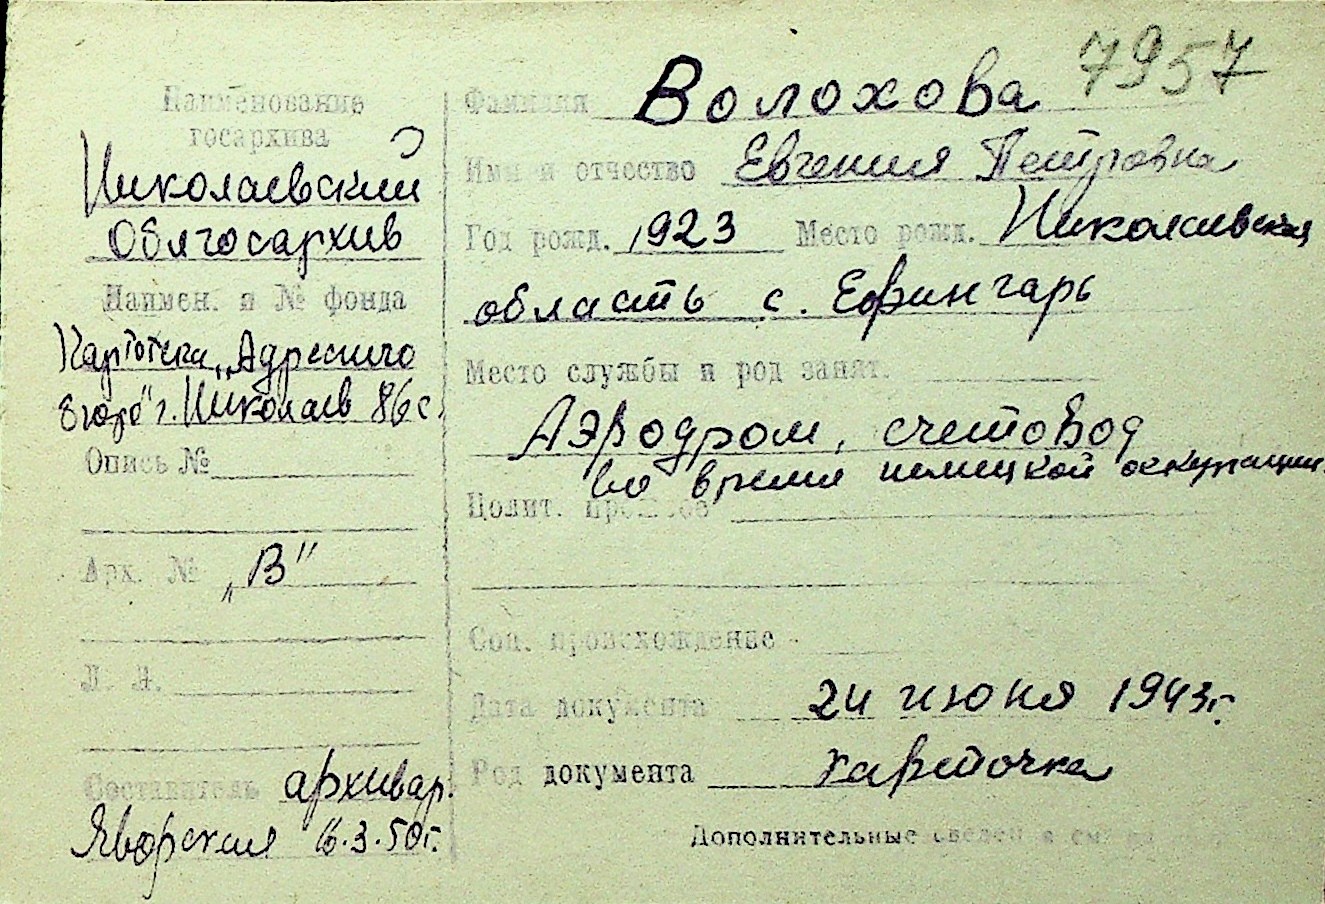 7957
Наименование
госархива
Николаевский
Облгосархив
Наимен. и № фонда
Картотека „Адресного
бюро" г. Николаев 86 с.
Опись №
Арх. № „В"
Л. Л.
Составитель архивар.
Яворская 16.3.50 г.
Фамилия Волохова
Имя и отчество Евгения Петровна
Год рожд. 1923 Место рожд. Николаевская
область с. Ефингарь
Место службы и род занят.
Аэродром, счетовод
во время немецкой оккупации
Полит. прошлое
Соц. происхождение
Дата документа 24 июня 1943 г.
Род документа карточка
Дополнительные сведен я см. на